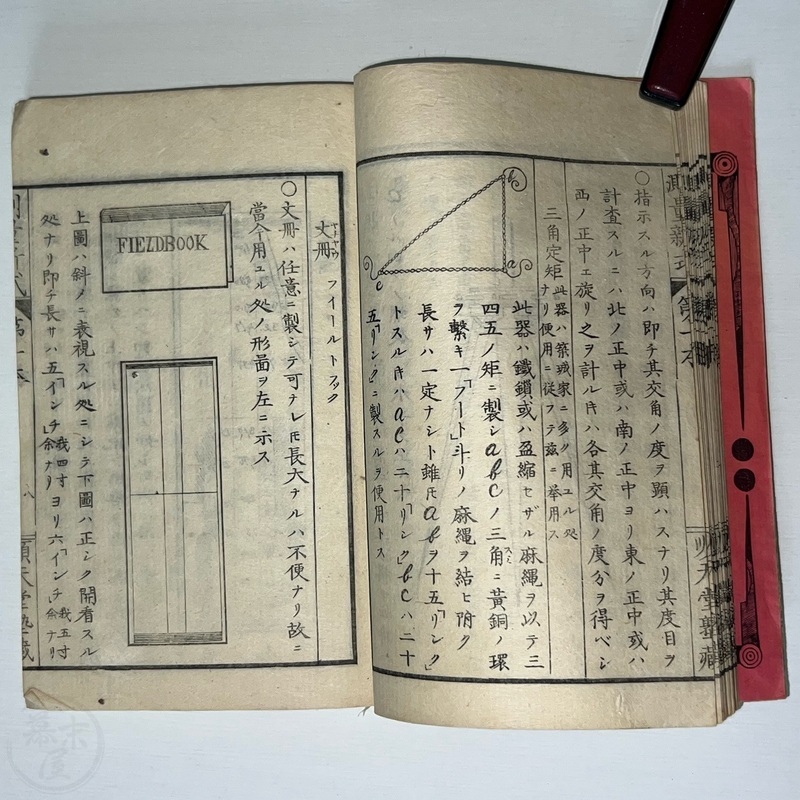 ○指示スル方向ハ即チ其交角ノ度ヲ顕ハスナリ其度目ヲ
計査スルニハ北ノ正中或ハ南ノ正中ヨリ東ノ正中或ハ
西ノ正中エ旋リ之ヲ計ル𪜈ハ各其交角ノ度分ヲ得ベシ
三角定矩 此器ハ築城家ニ多ク用ユル処
ナリ便用ニ従フテ茲ニ挙用ス
b
a
c
此器ハ鐵鎖或ハ盈縮セザル麻縄ヲ以テ三
四五ノ矩ニ製シabcノ三角ニ黄銅ノ環
ヲ繋キ一「フート」斗リノ麻縄ヲ結ヒ附ク
長サハ一定ナシト雖𪜈abヲ十五「リンク」
トスル𪜈ハacハ二十「リンク」bcハ二十
五「リンク」ニ製スルヲ便用トス
測量新式
第一本
順天堂塾蔵
文冊
フイールトブック
○文冊ハ任意ニ製シテ可ナレ𪜈長大ナルハ不便ナリ故ニ
當今用ユル処ノ形畐ヲ左ニ示ス
FIELDBOOK
上圖ハ斜ノニ表視スル処ニシテ下圖ハ正シク開看スル
処ナリ即チ長サハ五「インチ」我四寸余ナリヨリ六「インチ」我五寸余ナリ
第一本
八
順天堂塾蔵
幕末屋